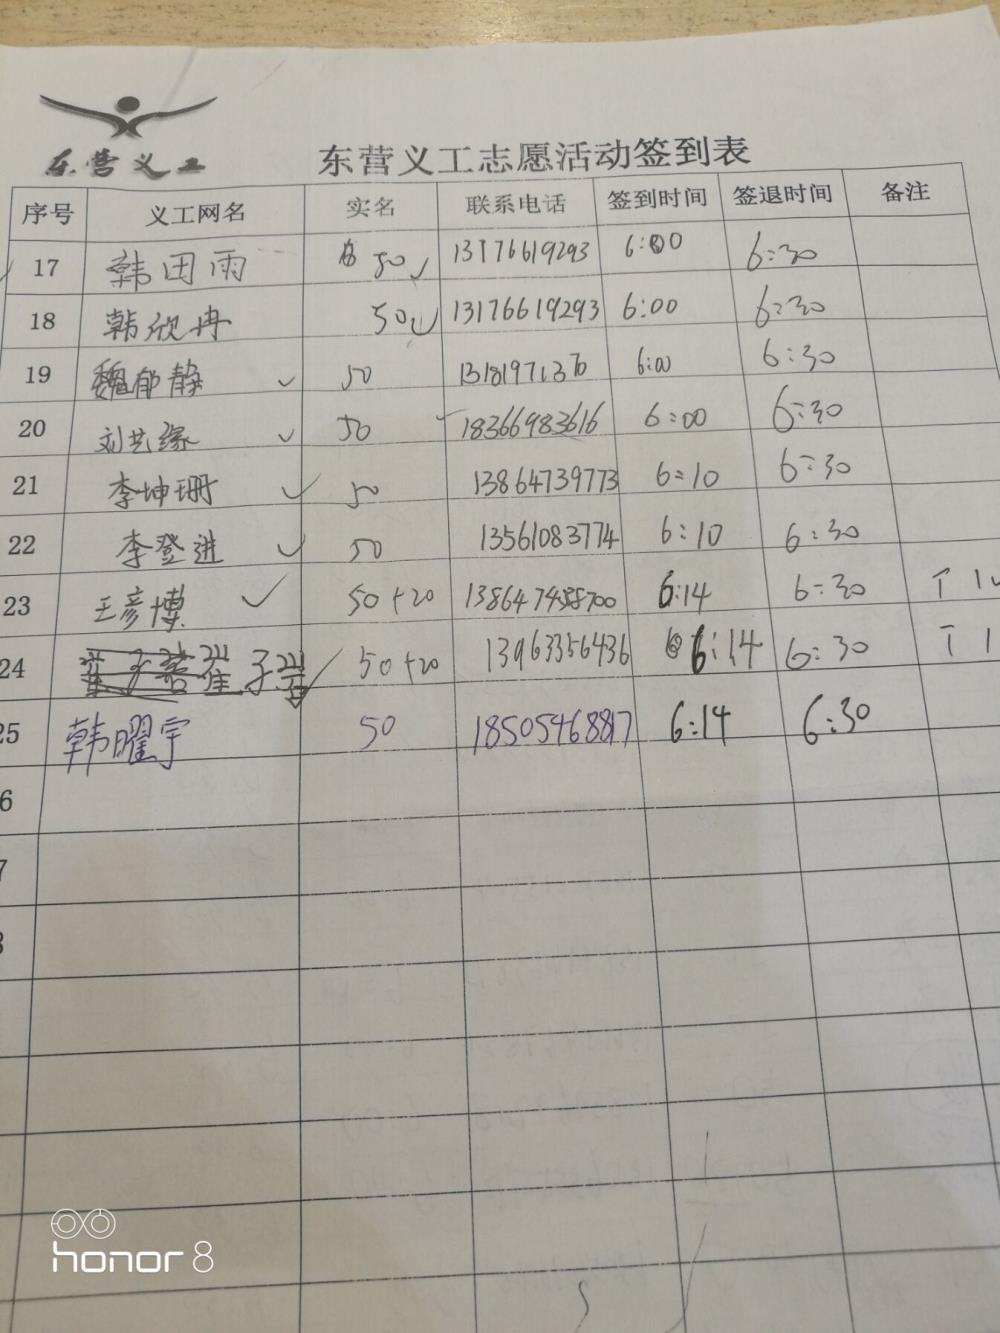 东营义工
东营义工志愿活动签到表
序号 义工网名 实名 联系电话 签到时间 签退时间 备注
17 韩田雨 50 13176619293 6:00 6:30
18 韩欣冉 50 13176619293 6:00 6:30
19 魏郁静 50 6:00 6:30
20 刘艺缘 50 18366983616 6:00 6:30
21 李坤珊 50 13864739773 6:10 6:30
22 李登进 50 13561083774 6:10 6:30
23 王彦博 50+20 6:14 6:30 T
24 崔子 50+20 13963356436 6:14 6:30 T
25 韩曜宇 50 18505468817 6:14 6:30
6
7
8
honor 8